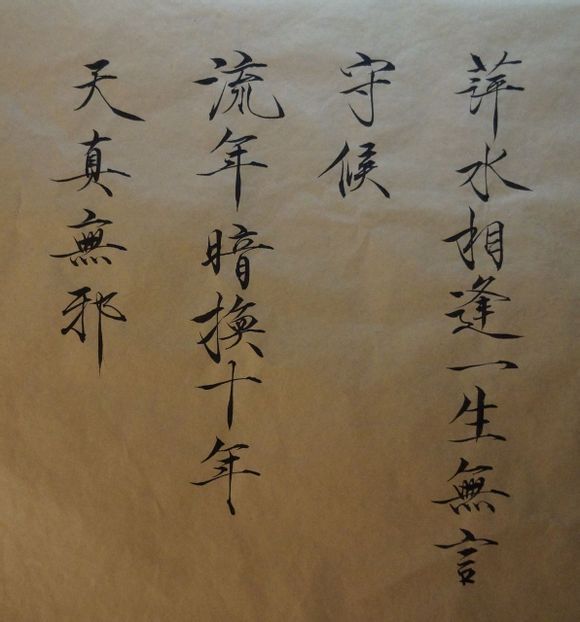 萍水相逢一生無言
守候
流年暗換十年
天真無邪